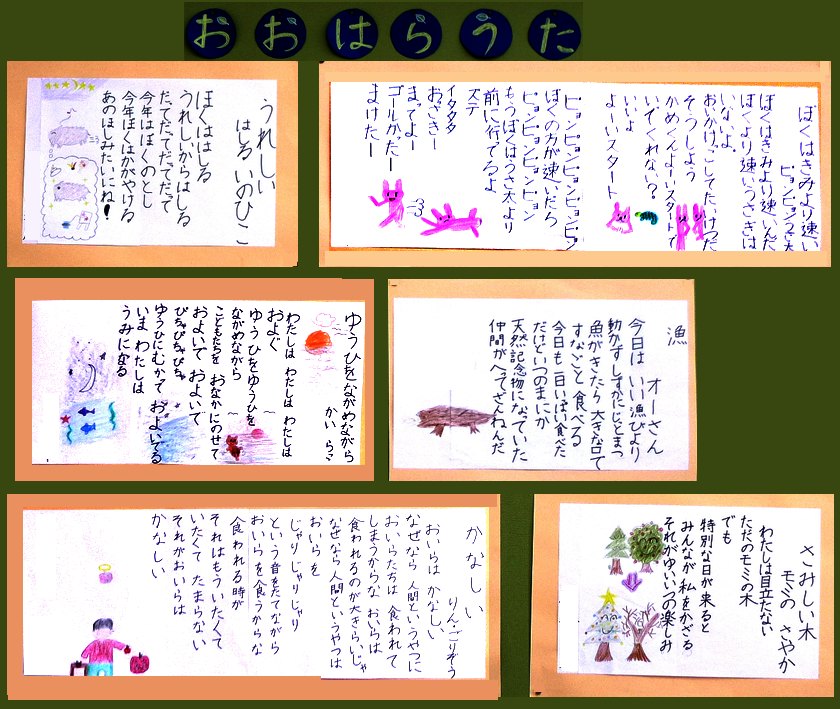 おおはらうた
ぼくはきみより速い
ピョンピョンうさ太
ぼくはきみより速いんだ
ぼくより速いうさぎは
いないよ。
おいかけっこしてたいけつだ
そうしよう
かめくんよーいスタートで
いってくれない?
いいよ
よーいスタート
ピョンピョンピョンピョンピョン
ぼくの方が速いだろ
ピョンピョンピョンピョン
もうぼくはうさ太より
前に行ってるよ
ステ
イタタタ
おさきー
まってよー
ゴールかったー
まけたー
うれしい
はしる いのひこ
ぼくははしる
うれしいからはしる
だってだてだてだって
今年はぼくのとし
今年ぼくはかがやける
あのほしみたいにね!
漁
オーさん
今日は いい漁びより
動かずしずかにじとまつ
魚がきたら 大きな口で
すなごと 食べる
今日も一日いぱい食べた
だけどいつのまにか
天然記念物になっていた
仲間がへってざんねんだ
ゆうひをながめながら
かい らっこ
わたしは わたしは わたしは
およぐ
ゆうひをゆうひを
ながめながら
こどもたちを おなかにのせて
およいで およいで
ぴちゃぴちゃぴちゃ
ゆうひにむかて およいでる
いま わたしは
うみになる
さみしい木
モミの さやか
わたしは目立たない
ただのモミの木
でも
特別な日が来ると
みんなが 私をかざる
それがゆいいつの楽しみ
かなしい
りんごりぞう
おいらは かなしい
なぜなら 人間というやつに
おいらたちは 食われて
しまうからな おいらは
食われるのが大きらいじゃ
なぜなら人間というやつは
おいらを
じゃりじゃりじゃり
という音をたてながら
おいらを食うからな
食われる時が
それはもういたくて
いたくて たまらない
それがおいらは
かなしい